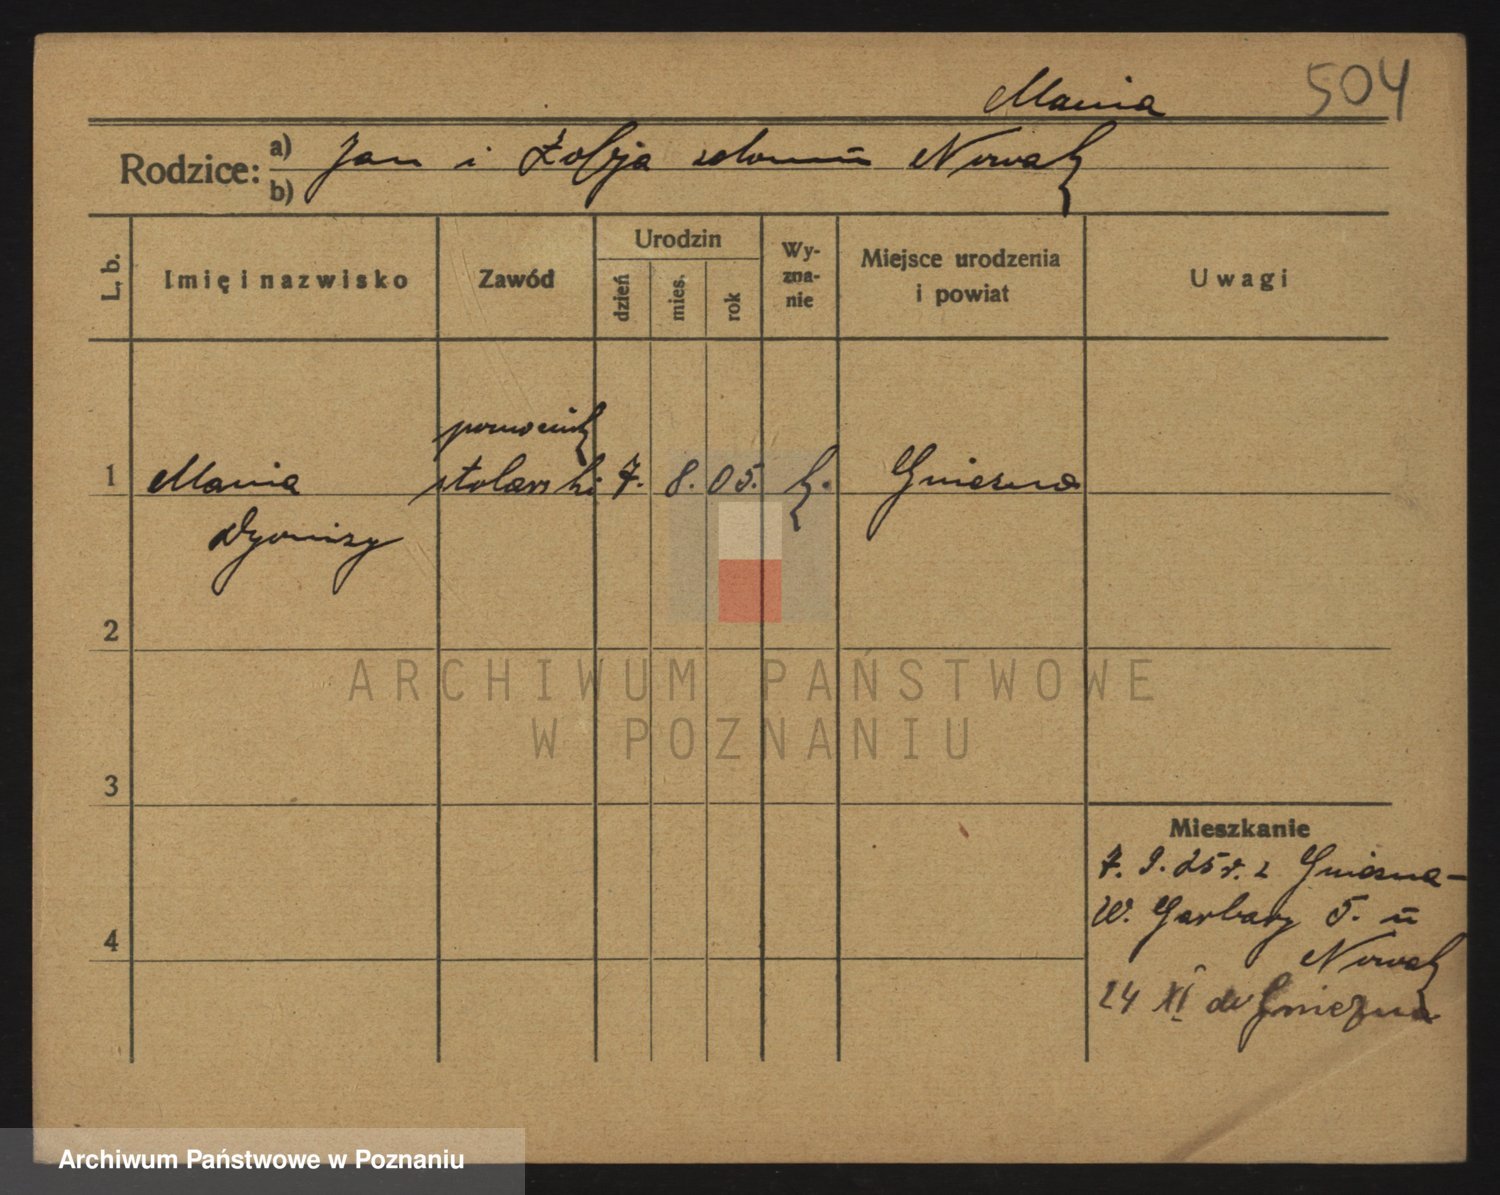 Mania 504
Rodzice: a) Jan i Zofja z domu Nowak
b)
L. b. Imię i nazwisko Zawód Urodzin dzień mies. rok Wy-zna-nie Miejsce urodzenia i powiat Uwagi
pomocnik
1 Mania stolarski 7. 8. 05. k. Gniezno
Dyonizy
2
3
Mieszkanie
7. 9. 25 r. z Gniezna-
W. Garbary 5. u
4 Nowak
24 XI do Gniezna
ARCHIWUM PAŃSTWOWE
W POZNANIU
Archiwum Państwowe w Poznaniu